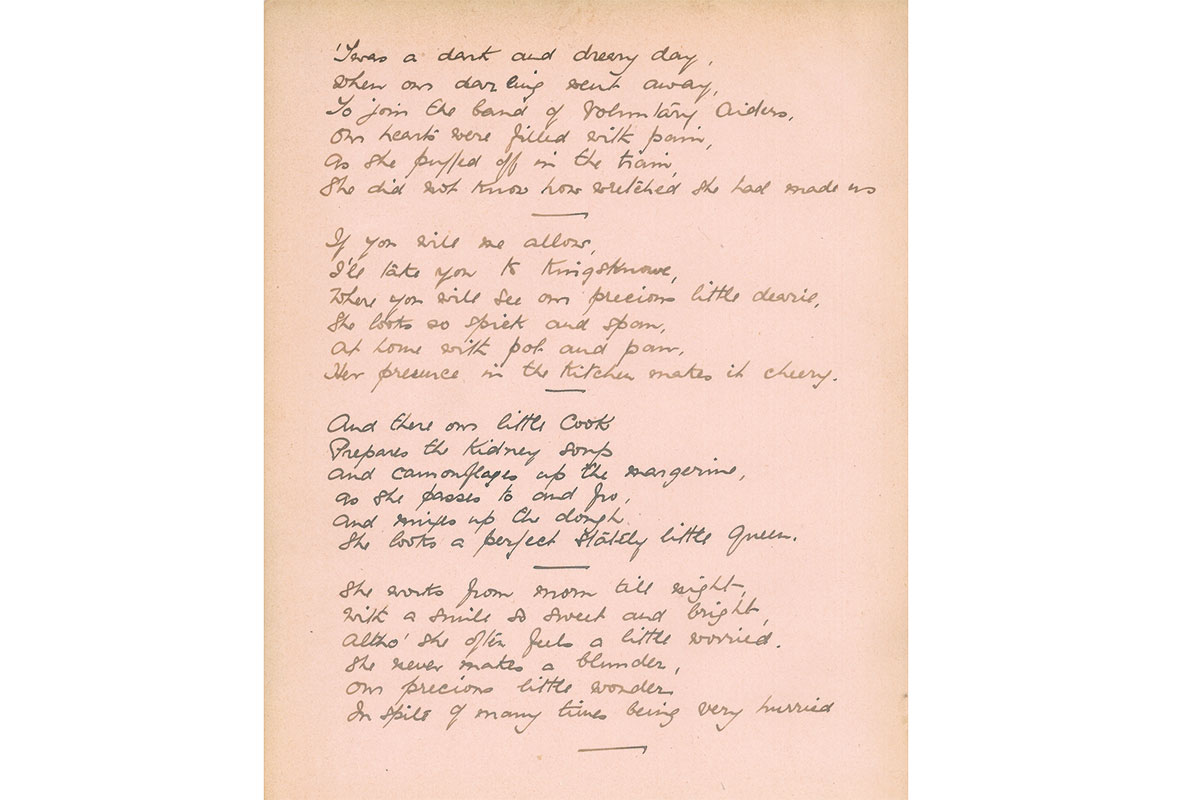 'Twas a dark and dreery day,
When our darling went away,
To join the band of Voluntary Aiders,
Our hearts were filled with pain,
As she puffed off in the train,
She did not know how wretched she had made us
If you will me allow,
I'll take you to Kingsknowe,
Where you will see our precious little dearie,
She looks so spick and span,
At home with pot and pan,
Her presence in the kitchen makes it cheery.
And there our little Cook
Prepares the Kidney soup
And camouflages up the margerine,
As she passes to and fro,
And mixes up the dough
She looks a perfect stately little Queen.
She works from morn till night,
With a smile so sweet and bright,
Altho' she often feels a little worried.
She never makes a blunder,
Our precious little wonder
In spite of many times being very hurried